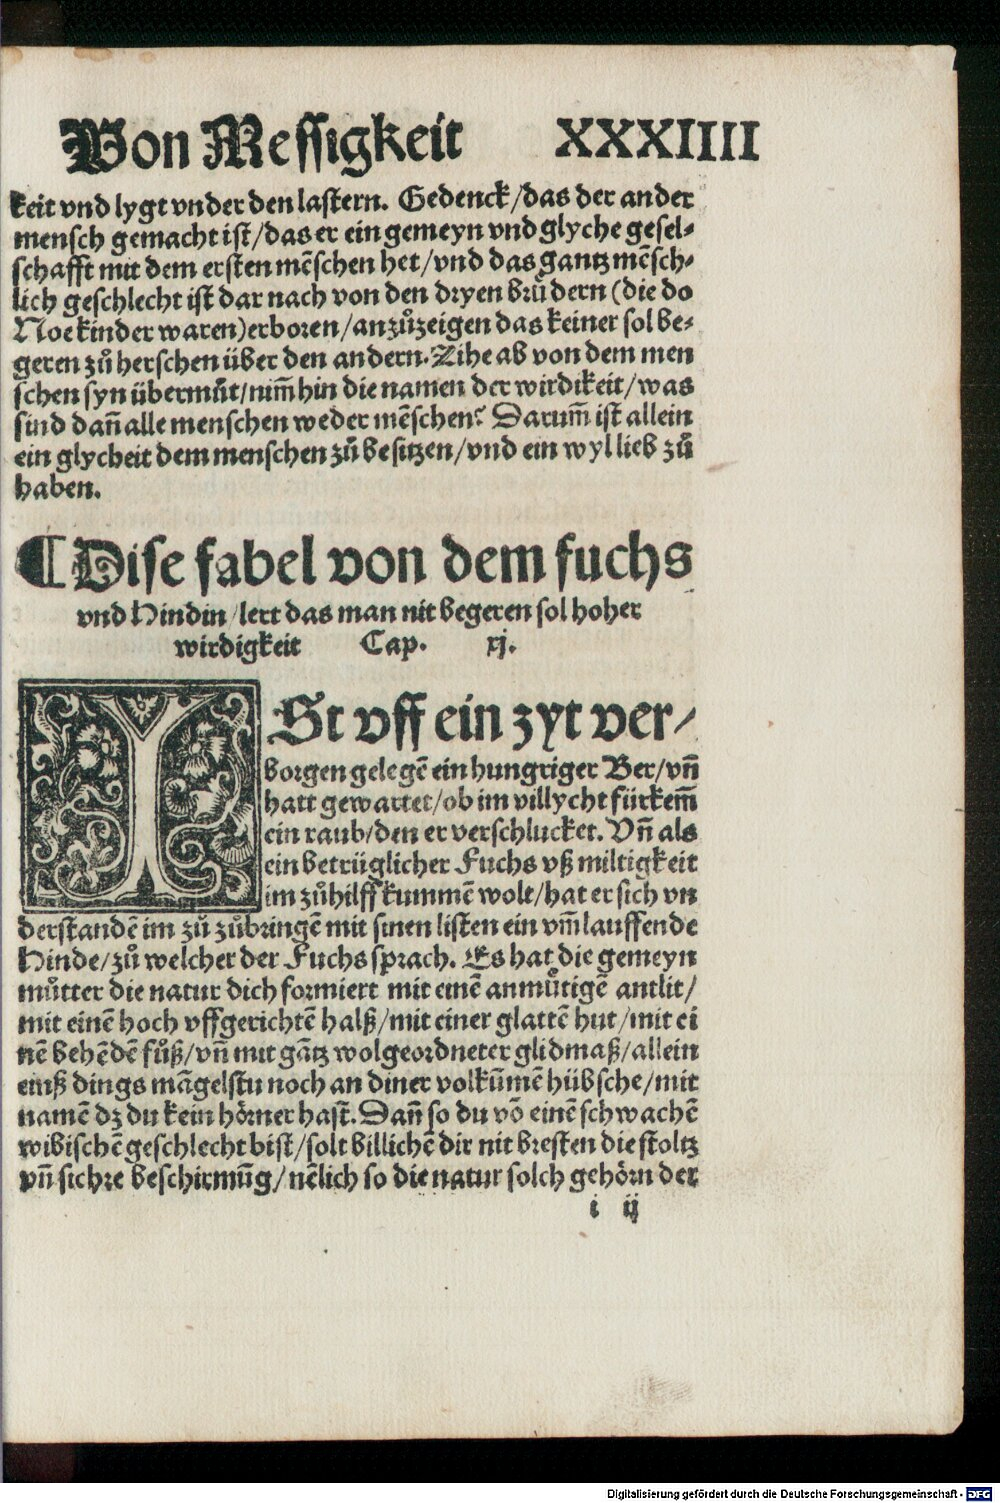 Von Messigkeit XXXIIII
keit vnd lygt vnder den lastern. Gedenck/das der ander
mensch gemacht ist/das er ein gemeyn vnd glyche gesel⸗
schafft mit dem ersten mẽschen het/vnd das gantz mẽsch⸗
lich geschlecht ist dar nach von den dryen brůdern (die do
Noe kinder waren)erboren/anzůzeigen das keiner sol be⸗
geren zů herschen über den andern. Zihe ab von dem men
schen syn übermůt/nim̃ hin die namen der wirdikeit/was
sind dañ alle menschen weder mẽschen? Darum̃ ist allein
ein glycheit dem menschen zů besitzen/vnd ein wyl lieb zů
haben.
¶ Dise fabel von dem fuchs
vnd Hindin/lert das man nit begeren sol hoher
wirdigkeit Cap. xj.
ISt vff ein zyt ver⸗
borgen gelegẽ ein hungriger Ber/vñ
hatt gewartet/ob im villycht fürkem̃
ein raub/den er verschlucket. Vñ als
ein betrüglicher Fuchs vß miltigkeit
im zůhilff kummẽ wolt/hat er sich vn
derstandẽ im zů zůbringẽ mit sinen listen ein vm̃lauffende
Hinde/zů welcher der Fuchs sprach. Es hat die gemeyn
můtter die natur dich formiert mit einẽ anmůtigẽ antlit/
mit einẽ hoch vffgerichtẽ halß/mit einer glattẽ hut/mit ei
nẽ behẽdẽ fůß/vñ mit gãtz wolgeordneter glidmaß/allein
einß dings mãgelstu noch an diner volkũmẽ hübsche/mit
namẽ dz du kein hörner hast. Dañ so du võ einẽ schwachẽ
wibischẽ geschlecht bist/solt billichẽ dir nit bresten die stoltz
vñ sichre beschirmũg/nẽlich so die natur solch gehörn der
i ij
Digitalisierung gefördert durch die Deutsche Forschungsgemeinschaft - DFG